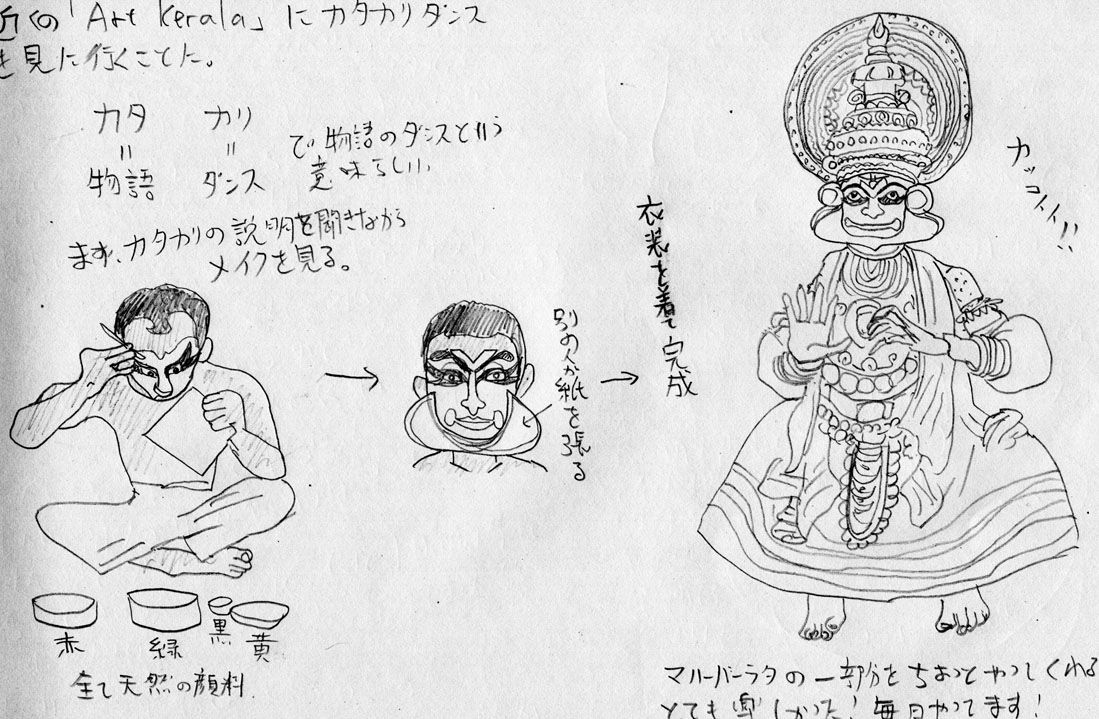 近くの「Art Kerala」にカタカリダンス
を見に行くことに。
カタ カリ
= =
物語 ダンス
で物語のダンスという
意味らしい
まず、カタカリの説明を聞きながら
メイクを見る。
別の人が紙を張る
衣装を着て完成
カッコイイ!!
赤 緑 黒 黄
全て天然の顔料
マハーバーラタの一部分をちょっとやってくれる
とても楽しかった!毎日やってます!